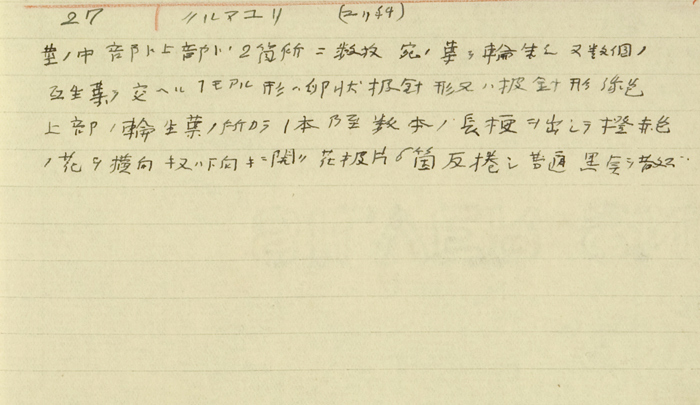 27 クルマユリ (ユリ科)
茎ノ中部ト上部ト2箇所ニ数枚宛ノ葉ヲ輪生シ又数個ノ
互生葉ヲ交ヘルコトモアル形ハ卵状披針形又ハ披針形 緑色
上部ノ輪生葉ノ所カラ1本乃至数本ノ長梗ヲ出シテ橙赤色
ノ花ヲ横向又ハ下向キニ開ク 花披片6箇反捲シ普通黒点ヲ散